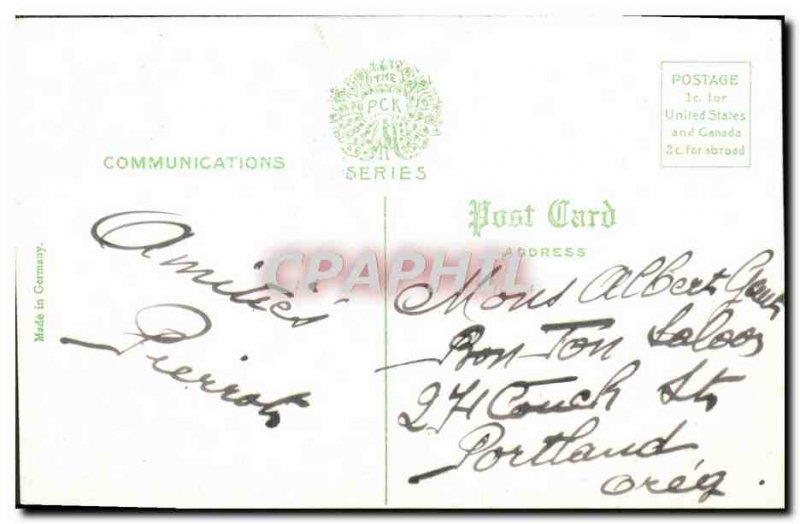 THE
PCK
SERIES
POSTAGE
1c. for
United States
and Canada
2c. for abroad
COMMUNICATIONS
Post Card
ADDRESS
Made in Germany.
Amitiés
Pierrot
CPAPHIL
Mons Albert
Bon-Ton Saloon
271 Couch St
Portland
Oreg.